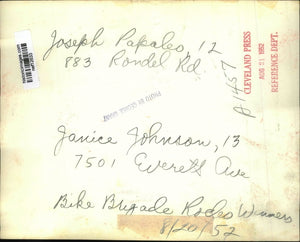 Joseph Papaleo, 12
883 Rondel Rd
A1457
CLEVELAND PRESS
AUG 21 1952
REFERENCE DEPT.
Janice Johnson, 13
7501 Everett Ave
Bike Brigade Rodeo Winners
8/20/52